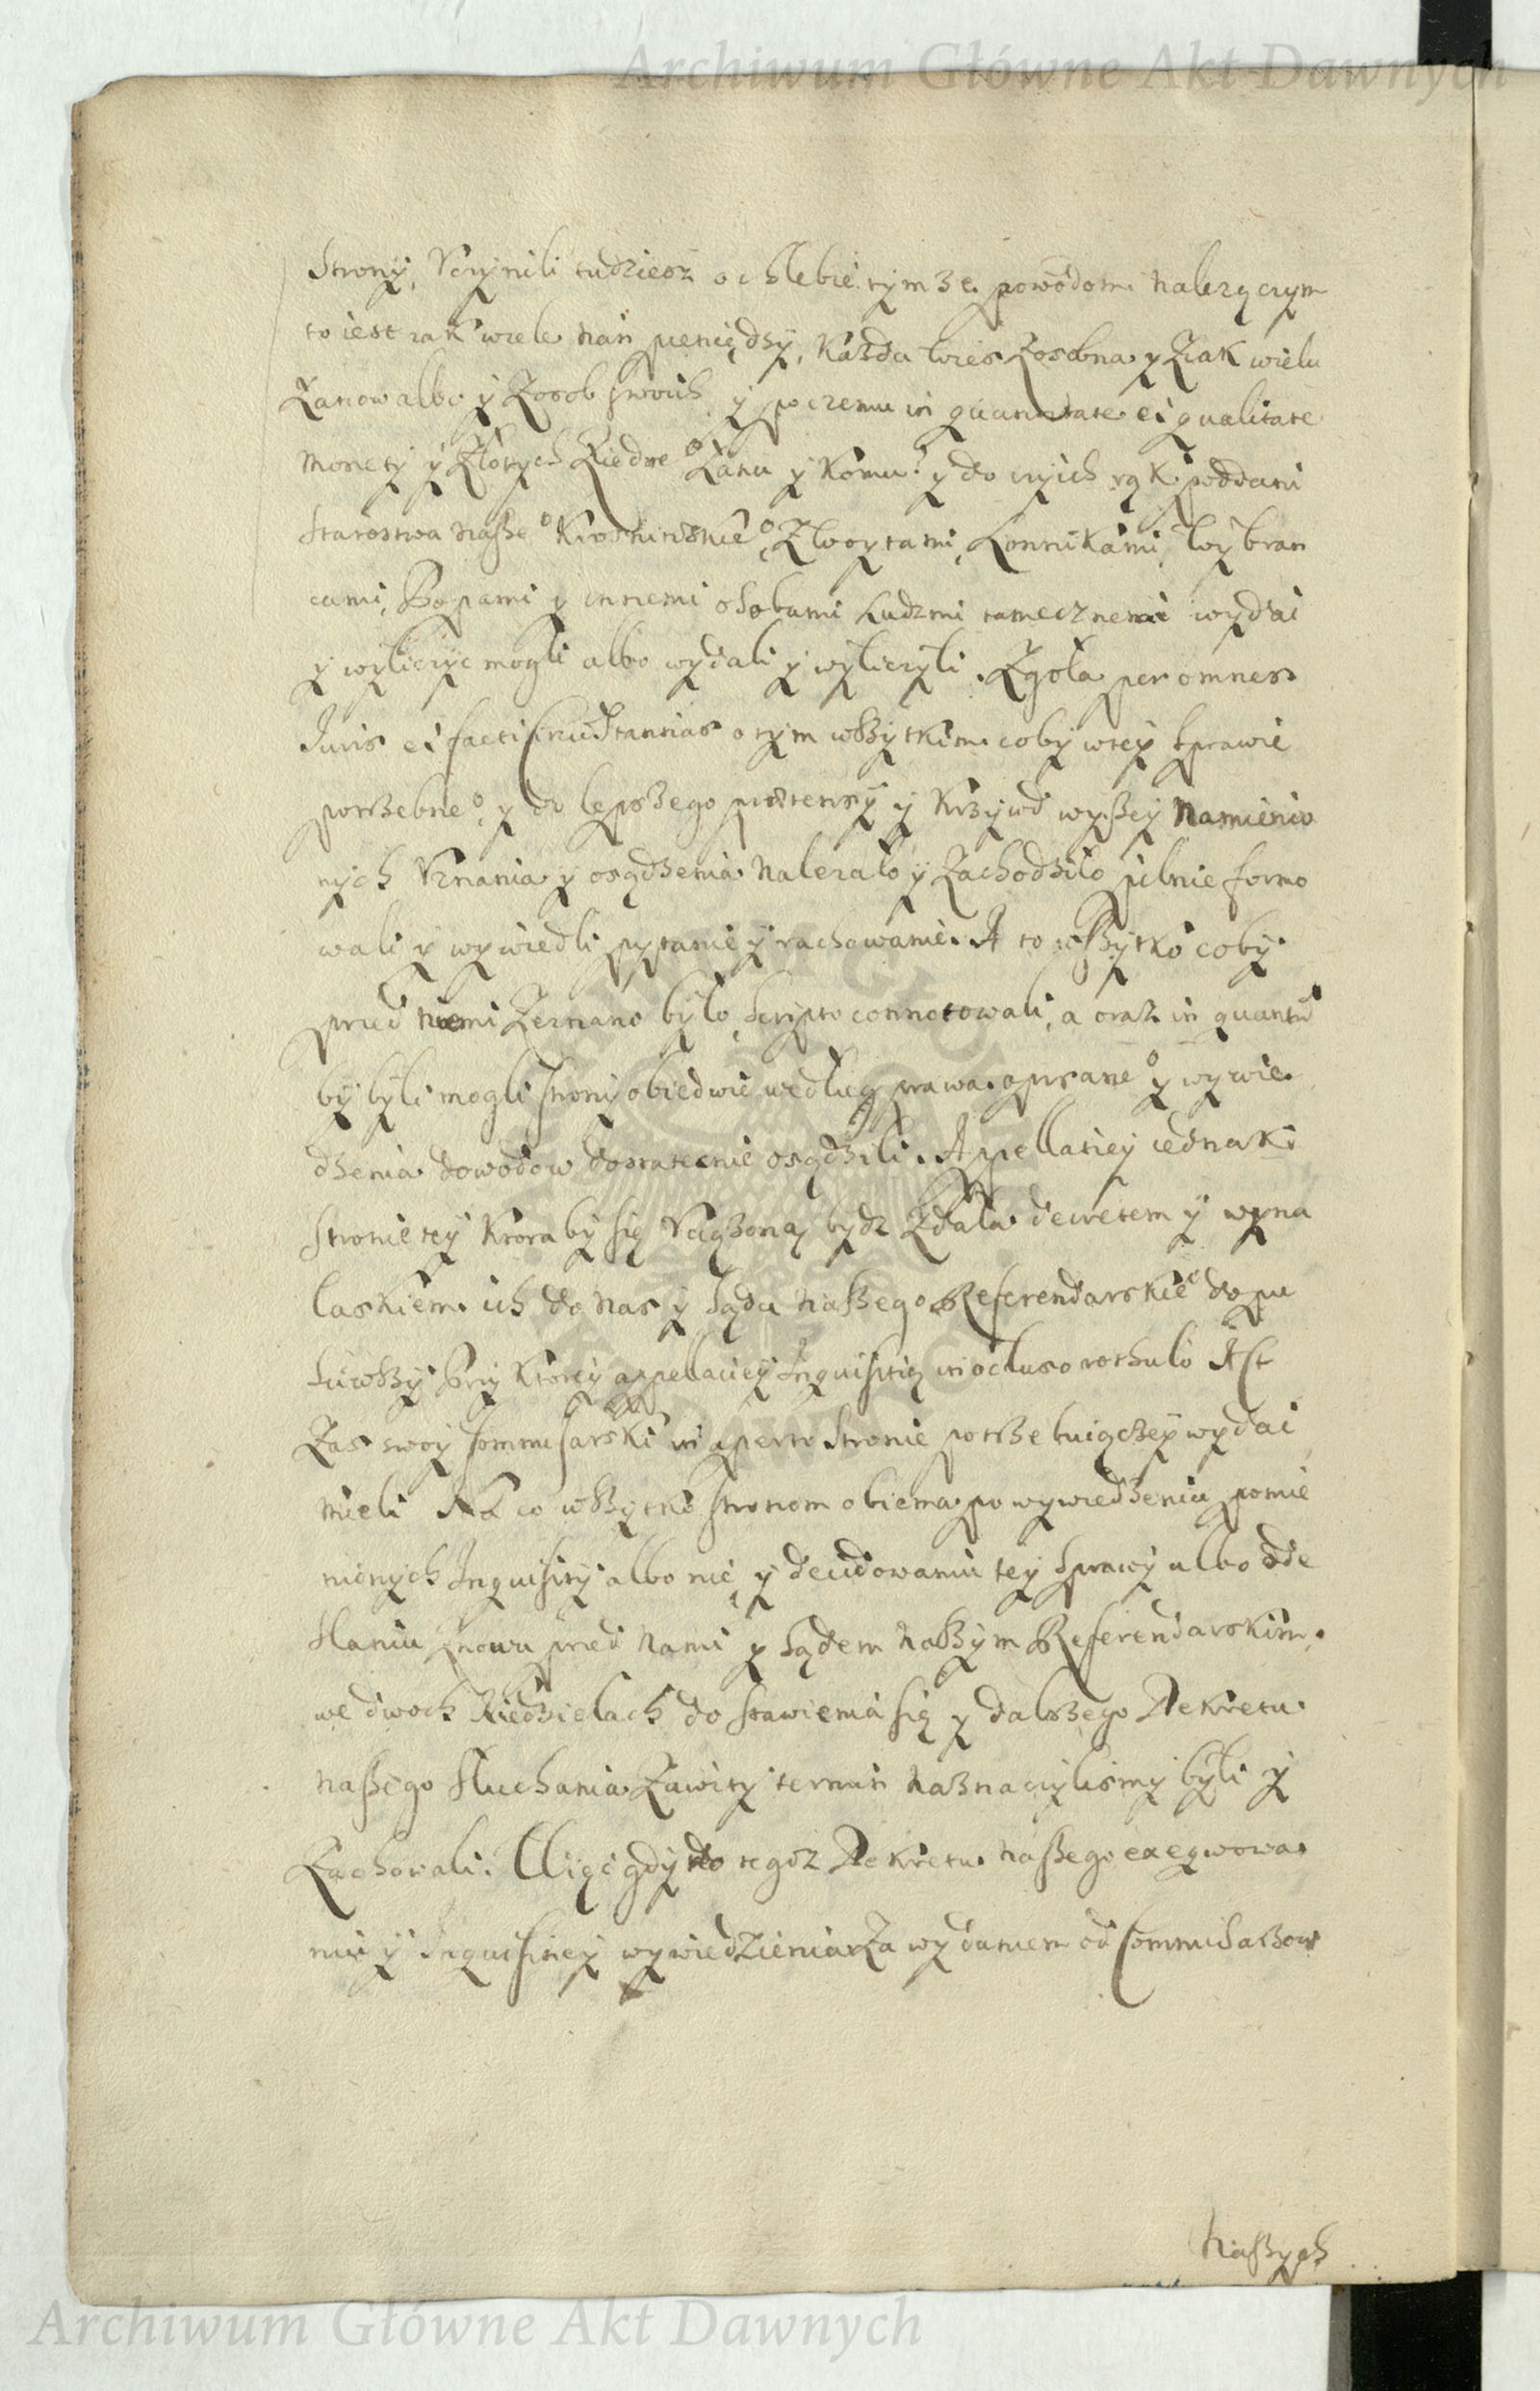 Archiwum Główne Akt Dawnych
Strony, Vczynili tudziesz o chlebie tym ze powodom nalezączym
to iest iak wiele nan pieniędzy, Każda wies zosobna y z iak wielu
Łanow albo y z osob swoich y po czemu in quantitate et qualitate
Monety y Złotych z iedne° Łanu y komu? y do czyich rąk poddani
Starostwa nasze° Krosninskie°, z woytami, Konnikami, wybran
cami, Popami y innemi osobami Ludzmi tamecznemi wydai
y wyliczyc mogli albo wydali y wyliczyli. Zgoła per omnes
Iuris et facti Circumstantias o tym wszytkim coby w tey sprawie
potrzebne° y do lepszego pretensÿ y krzywd wyszey namienio
nych Vznania y osądzenia nalezało y zachodziło pilnie formo
wali y wywiedli pytanie y rachowanie. A to wszytko coby
przed niemi zeznano było, scripto connotowali, a oraz in quantu
by byli mogli strony obiedwie według prawa opisane° y wywie
dzenia dowodow dostatecznie osądzili. Appellatiey iednak
stronie tey ktora by się Vciążoną bydz zdała decretem y wyna
laskiem ich do nas y Sądu naszego Referendarskie° dopu
sciwszy Przy ktorey appellaciey Inquisitią in ocluso rothulo Ast
zas swoy Commisarski in aperto stronie potrzebuiączey wydai
mieli Na co wszytko stronom obiema po wywiedzeniu pomie
nionych Inquisitÿ albo nie, y decidowaniu tey sprawy albo ode
słaniu znowu przed nami y sądem naszym Referendarskim
we dwoch Niedzielach do stawienia się y dalszego Dekretu
naszego słuchania Zawity termin naznaczylismy byli y
Zachowali. Więc gdy do tegoz Dekretu naszego exeqwowa
niu y Inquisitiey wywiedzienia za wydaniem od Commisarzow
naszych
Archiwum Główne Akt Dawnych